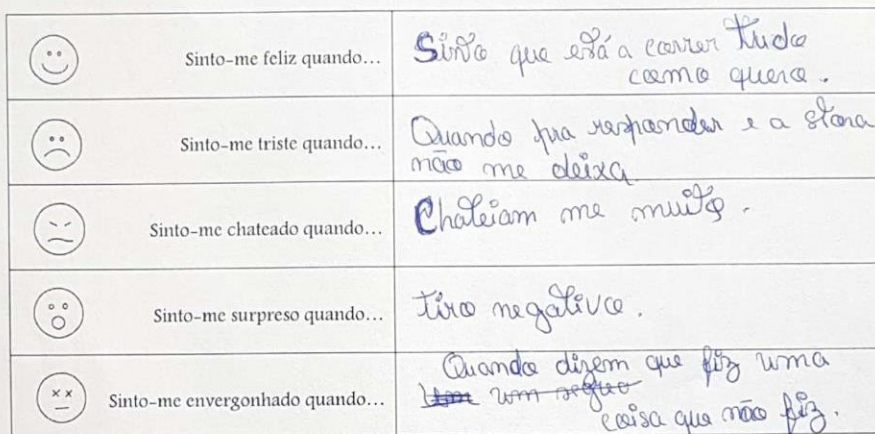 Sinto-me feliz quando...
Sinto que está a correr tudo
como quero.
Sinto-me triste quando...
Quando pra responder e a stora
não me deixa
Sinto-me chateado quando...
Chateiam me muito.
Sinto-me surpreso quando...
tiro negativa.
Sinto-me envergonhado quando...
Quando dizem que fiz uma
um
coisa que não fiz.